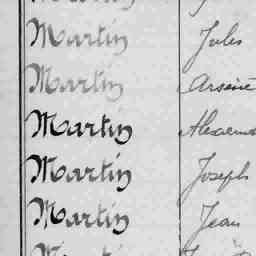 Martin Jules
Martin Arsène
Martin
Martin Joseph
Martin Jean